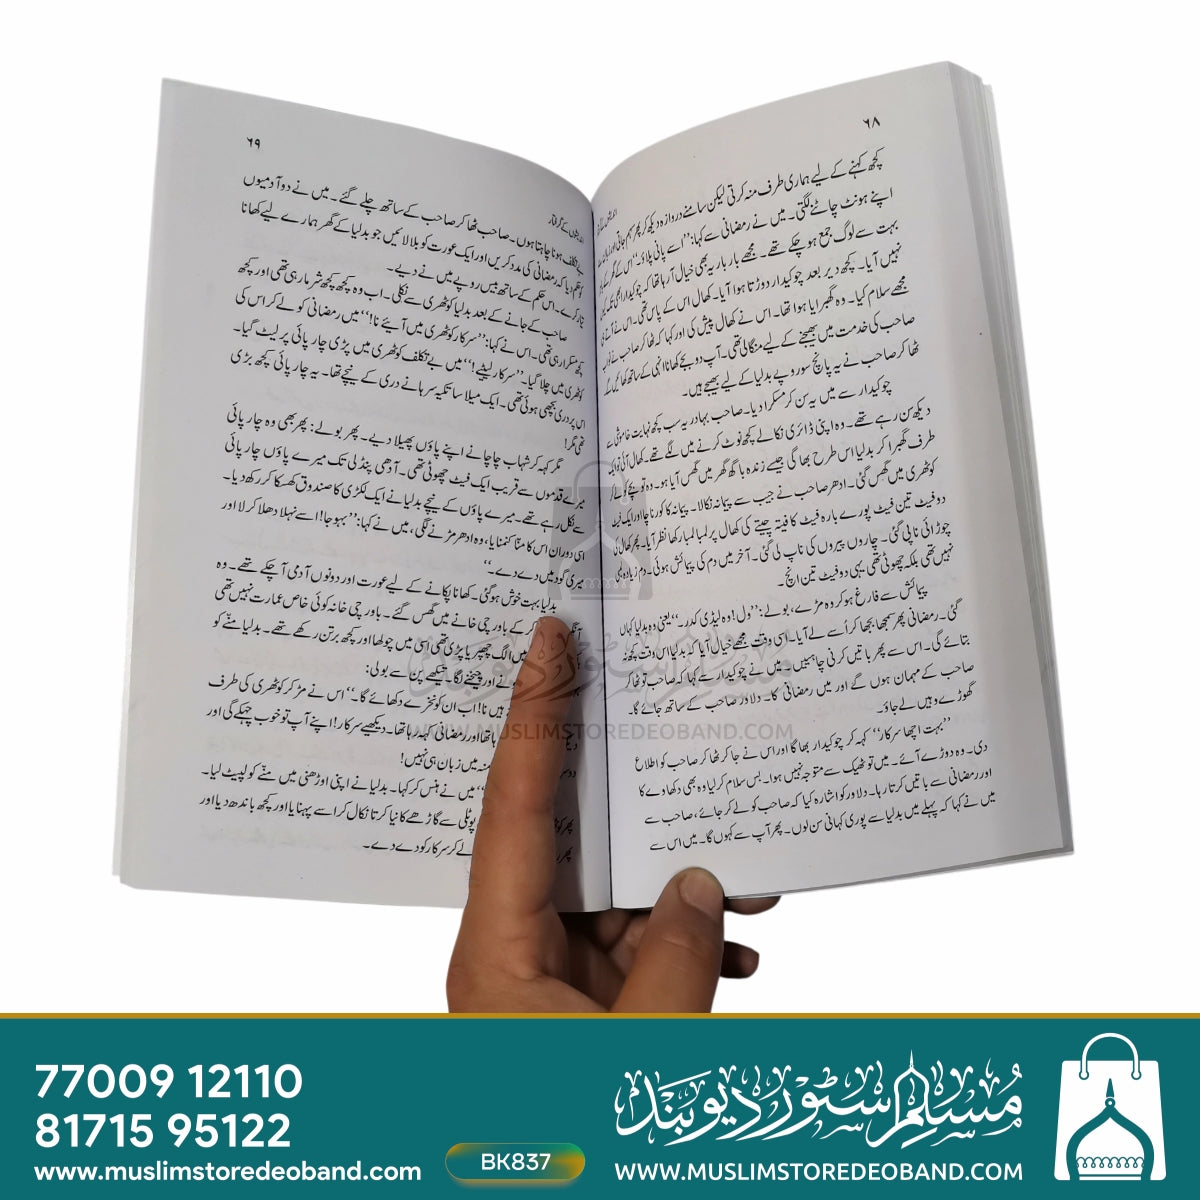 ۶۸
کچھ کہنے کے لیے ہماری طرف منہ کرتی لیکن سامنے دروازہ دیکھ کر پھر سہم جاتی اور زبان سے
اپنے ہونٹ چاٹنے لگتی۔ میں نے رمضانی سے کہا: ”اسے پانی پلاؤ۔“ اس کے گھر کے
بہت سے لوگ جمع ہو چکے تھے۔ مجھے بار بار یہ بھی خیال آ رہا تھا کہ چوکیدار ابھی تک کیوں
نہیں آیا۔ کچھ دیر بعد چوکیدار دوڑتا ہوا آیا۔ کھال اس کے پاس تھی۔ اس نے آتے ہی
مجھے سلام کیا۔ وہ گھبرایا ہوا تھا۔ اس نے کھال پیش کی اور کہا کہ ٹھاکر صاحب نے نواب
صاحب کی خدمت میں بھیجنے کے لیے منگالی تھی۔ آپ دوبجے کھانا انہی کے ساتھ کھائیں گے
ٹھاکر صاحب نے یہ پانچ سو روپے بدلیا کے لیے بھیجے ہیں۔
چوکیدار سے میں یہ سن کر مسکرا دیا۔ صاحب بہادر یہ سب کچھ نہایت خاموشی سے
دیکھ سن رہے تھے۔ وہ اپنی ڈائری نکالے کچھ نوٹ کرنے میں لگے تھے۔ کھال آئی تو ایک
طرف گھبرا کر بدلیا اس طرح بھاگی جیسے زندہ باگھ گھر میں گھس آیا ہو۔ وہ تو بچے کو لے کر
کوٹھری میں گھس گئی۔ ادھر صاحب نے جیب سے پیمانہ نکالا۔ پیمانہ کا کورنا چا اور ایک فٹ
دو فیٹ تین فیٹ پورے بارہ فیٹ کا فیتہ چیتے کی کھال پر لمبا لمبا رکھا نظر آیا۔ پھر کھال کی
چوڑائی ناپی گئی۔ چاروں پیروں کی ناپ لی گئی۔ آخر میں دم کی پیمائش ہوئی۔ دم زیادہ بڑی
نہیں تھی بلکہ چھوٹی تھی یہی دو فیٹ تین انچ۔
پیمائش سے فارغ ہو کر وہ مڑے، بولے: ”ول! وہ لیڈی کدر۔“ یعنی وہ بدلیا کہاں
گئی۔ رمضانی پھر سمجھا بجھا کر اُسے لے آیا۔ اسی وقت مجھے خیال آیا کہ بدلیا اس وقت کچھ نہ
بتائے گی۔ اس سے پھر باتیں کرنی چاہئیں۔ میں نے چوکیدار سے کہا کہ صاحب تو ٹھاکر
صاحب کے مہمان ہوں گے اور میں رمضانی کا۔ دلاور صاحب کے ساتھ جائے گا۔
گھوڑے وہیں لے جاؤ۔
”بہت اچھا سرکار“ کہہ کر چوکیدار بھاگا اور اس نے جا کر ٹھاکر صاحب کو اطلاع
دی۔ وہ دوڑے آئے۔ میں تو ٹھیک سے متوجہ نہیں ہوا۔ بس سلام کر لیا وہ بھی دکھاوے کا
اور رمضانی سے باتیں کرتا رہا۔ دلاور کو اشارہ کیا کہ صاحب کو لے کر جائے، صاحب سے
میں نے کہا کہ پہلے میں بدلیا سے پوری کہانی سن لوں۔ پھر آپ سے کہوں گا۔ میں اس سے
۶۹
بے تکلف ہونا چاہتا ہوں۔ صاحب ٹھاکر صاحب کے ساتھ چلے گئے۔ میں نے دو آدمیوں
کو حکم دیا کہ رمضانی کی مدد کریں اور ایک عورت کو بلا لائیں جو بدلیا کے گھر ہمارے لیے کھانا
تیار کرے۔ اس حکم کے ساتھ بیس روپے میں نے دیے۔
صاحب کے جانے کے بعد بدلیا کوٹھری سے نکلی۔ اب وہ کچھ کچھ شرما رہی تھی اور کچھ
کچھ مسکرا رہی تھی۔ اس نے کہا: ”سرکار کوٹھری میں آیئے نا!“ میں رمضانی کو لے کر اس کی
کوٹھری میں چلا گیا۔ ”سرکار لیٹیے!“ میں بے تکلف کوٹھری میں پڑی چارپائی پر لیٹ گیا۔
اس پر دری بچھی ہوئی تھی۔ ایک میلا سا تکیہ سرہانے دری کے نیچے تھا۔ یہ چارپائی کچھ بڑی
تھی مگر!
مگر کہہ کر شہاب چاچا نے اپنے پاؤں پھیلا دیے۔ پھر بولے: پھر بھی وہ چارپائی
میرے قدموں سے قریب ایک فیٹ چھوٹی تھی۔ آدھی پنڈلی تک میرے پاؤں چارپائی
سے نکل رہے تھے۔ میرے پاؤں کے نیچے بدلیا نے ایک لکڑی کا صندوق کھسکا کر رکھ دیا۔
اسی دوران اس کا منّا کنمنایا، وہ ادھر مڑنے لگی، میں نے کہا: ”بہو جا! اسے نہلا دھلا کر لا اور
میری گود میں دے دے۔“
بدلیا بہت خوش ہوگئی۔ کھانا پکانے کے لیے عورت اور دونوں آدمی آ چکے تھے۔ وہ
کر کے باورچی خانے میں گھس گئے۔ باورچی خانہ کوئی خاص عمارت نہیں تھی
میں الگ چھپریا پڑی تھی اسی میں چولھا اور کچھ برتن رکھے تھے۔ بدلیا منّے کو
نے اور چیخنے لگا۔ تیکھے پن سے بولی:
ہیں نا! اب ان کو نخرے دکھائے گا۔“ اس نے مڑ کر کوٹھری کی طرف
ہا تھا اور رمضانی کہہ رہا تھا۔ دیکھیے سرکار! اپنے آپ تو خوب چہکے گی اور
منہ میں زبان ہی نہیں!
“ میں نے ہنس کر کہا۔ بدلیا نے اپنی اوڑھنی میں منّے کو لپیٹ لیا۔
پوٹلی سے گاڑھے کا نیا کرتا نکال کر اسے پہنایا اور کچھ باندھ دیا اور
لے کر سرکار کو دے دے۔
مسلم اسٹور دیوبند
WWW.MUSLIMSTOREDEOBAND.COM
77009 12110
81715 95122
www.muslimstoredeoband.com
BK837
مسلم اسٹور دیوبند
WWW.MUSLIMSTOREDEOBAND.COM